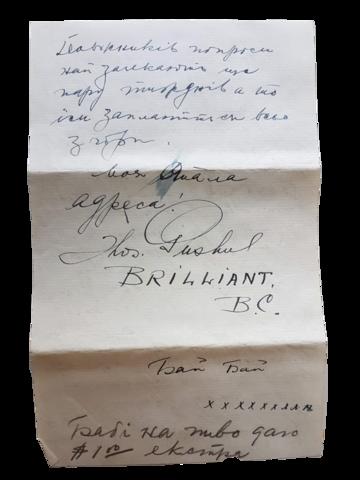 Довжників попроси
най зачекають ще
пару тижднів а то
їм заплатиться все
згори.
моя стала
адреса!
Thos.
BRILLIANT.
B.C.
Бай Бай
x x x x x x x x x
Бабі на пиво даю
$1.00 екстра